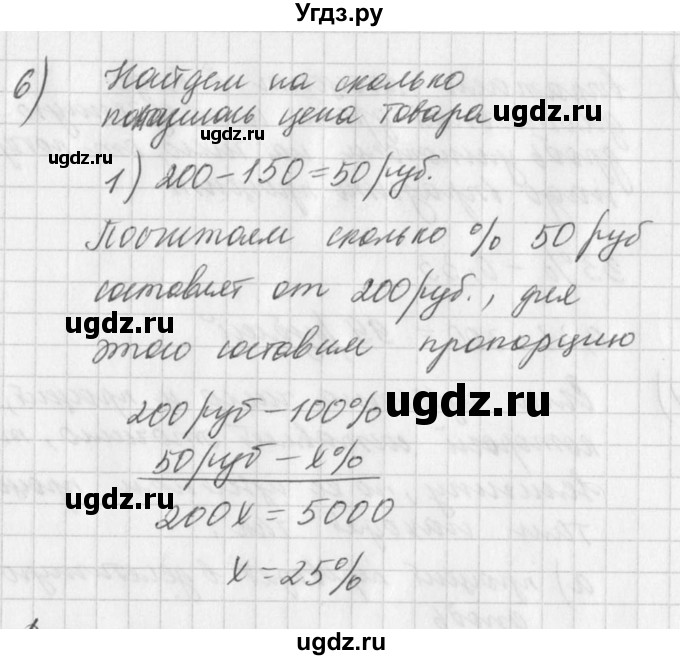 Угдз.ру
6) Найдем на сколько
понизилась цена товара
ugdz.ru
ugdz.ru
ugdz.ru
1) 200-150=50 руб.
Посчитаем сколько % 50 руб
составляет от 200 руб., для
ugdz.ru
этого составим пропорцию
200 руб - 100%
ugdz.ru
50 руб - x%
ugdz.ru
200x = 5000
x = 25%
ugdz.ru